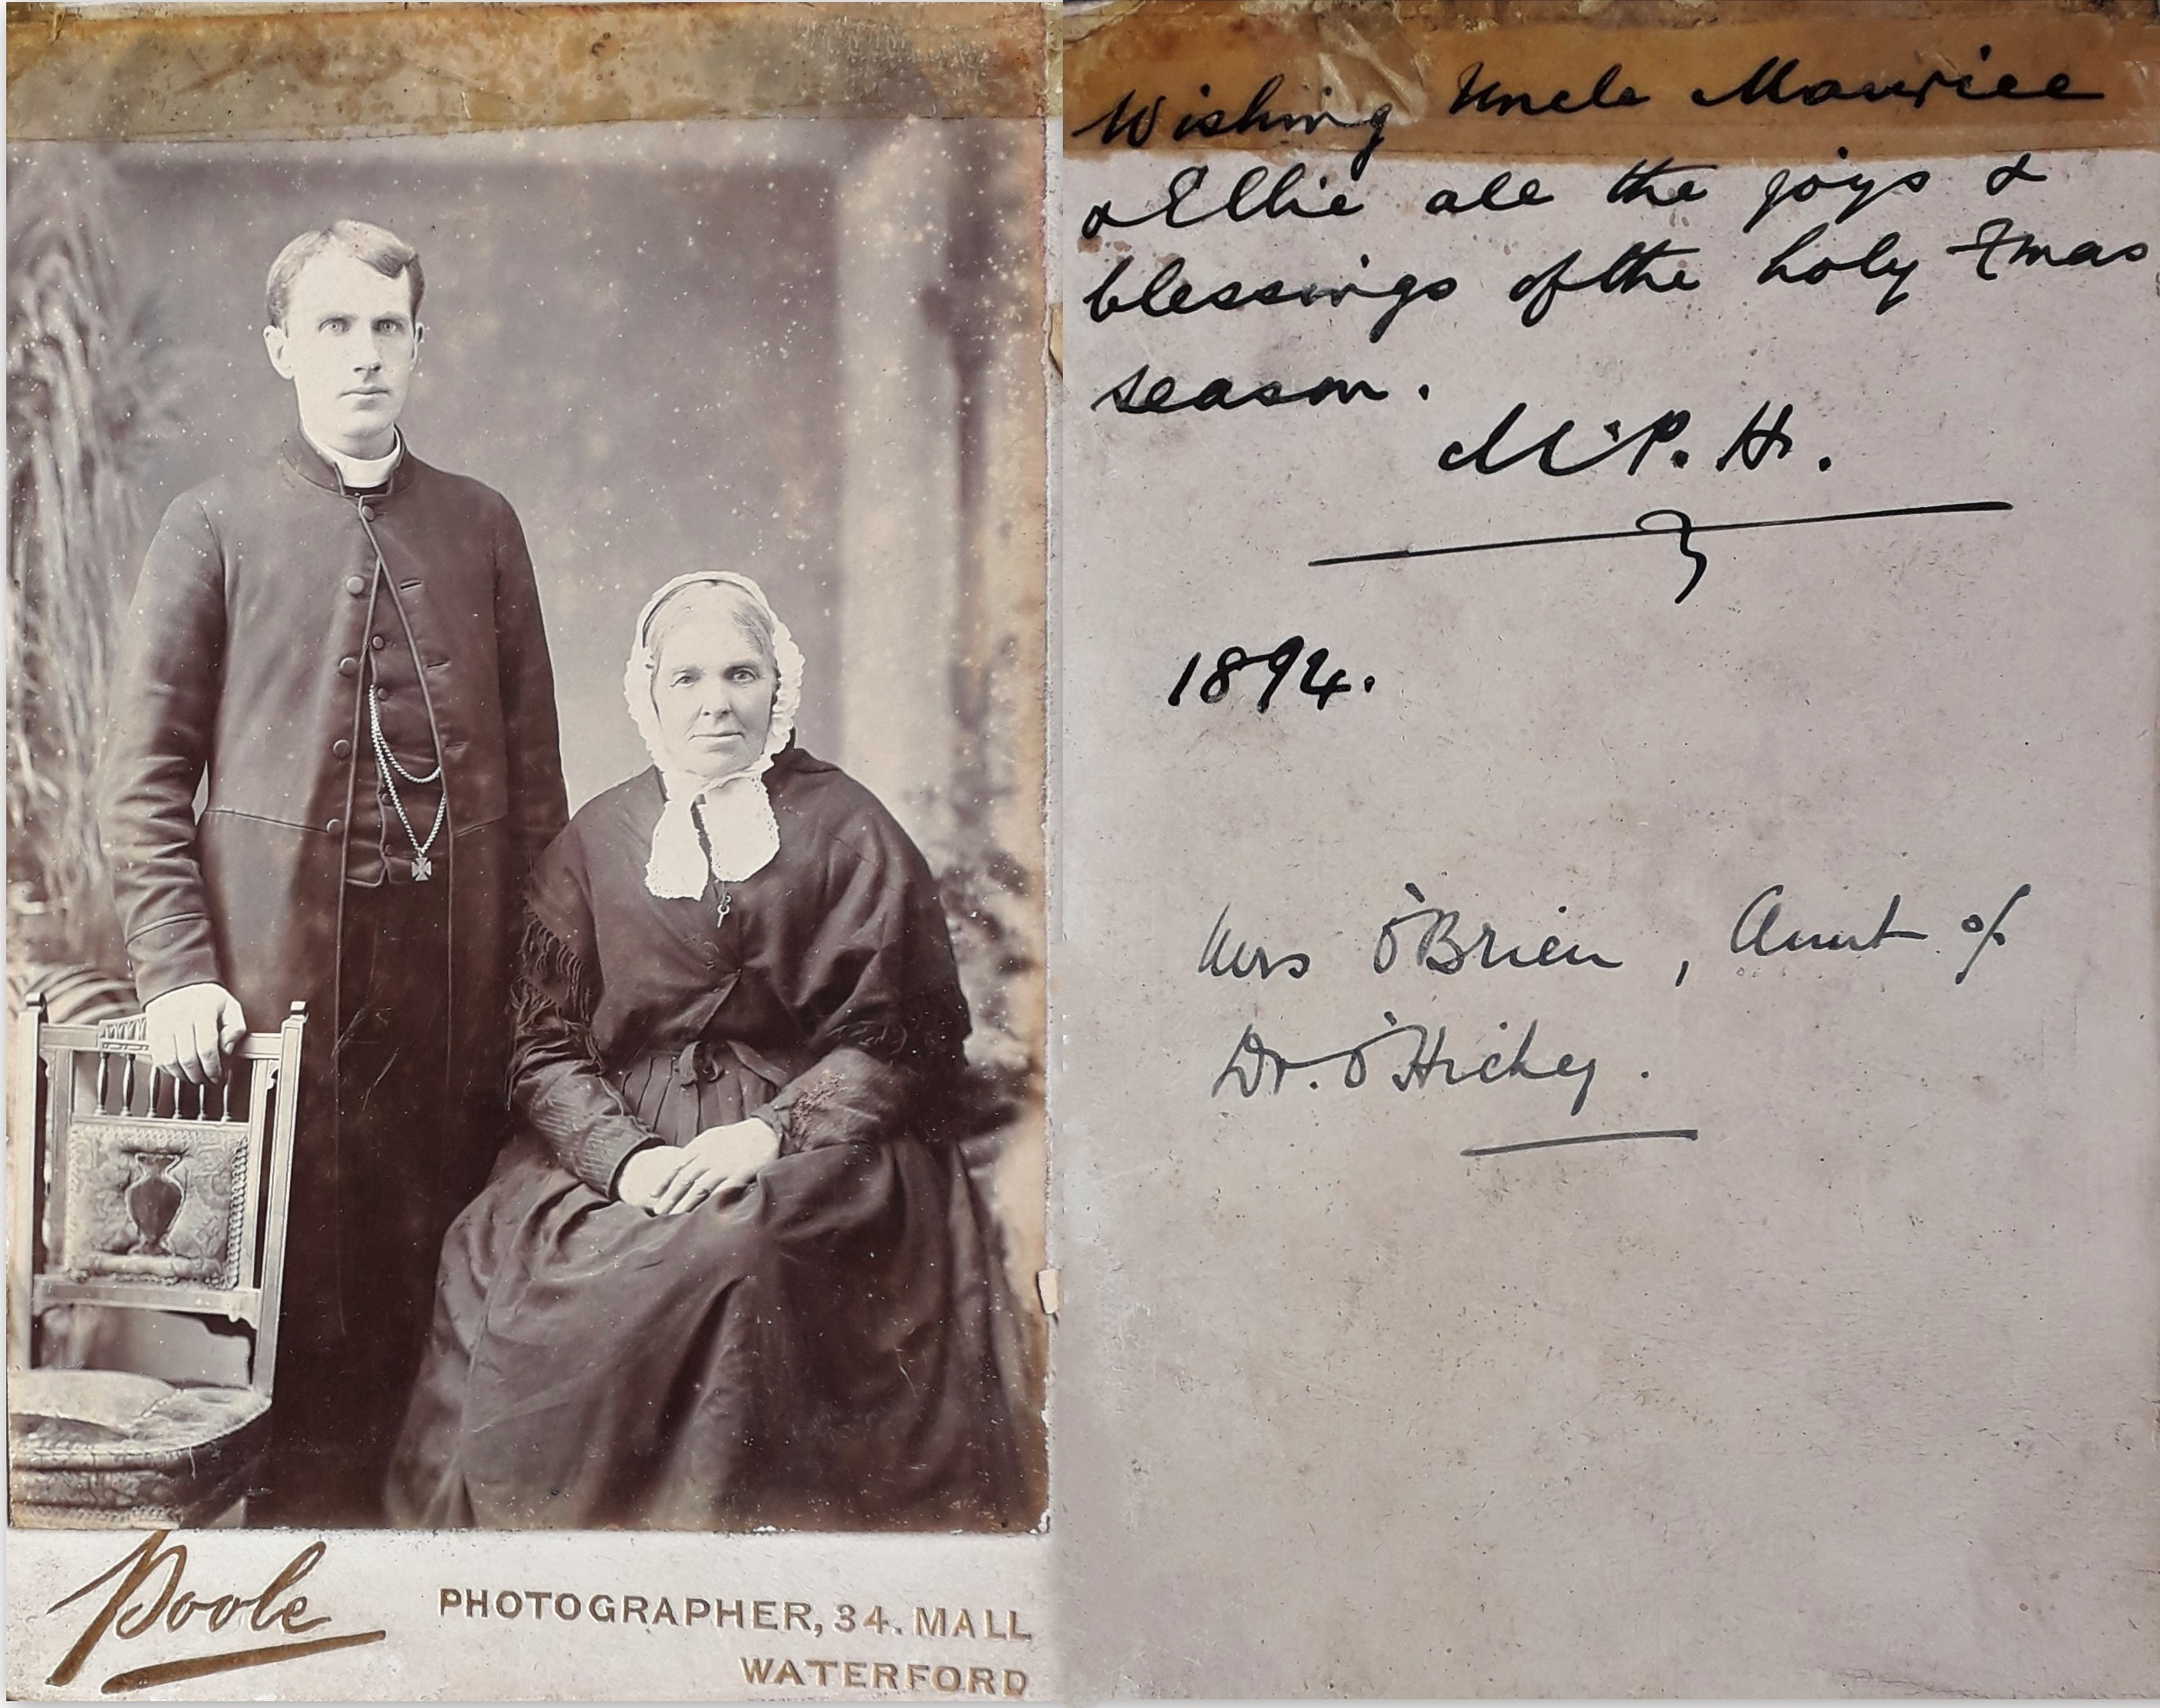 Poole
PHOTOGRAPHER, 34. MALL
WATERFORD
Wishing Uncle Maurice
& Ellie all the joys &
blessings of the holy Xmas
season.
M. P. H.
1894.
Mrs O'Brien, Aunt of
Dr. O'Hickey.